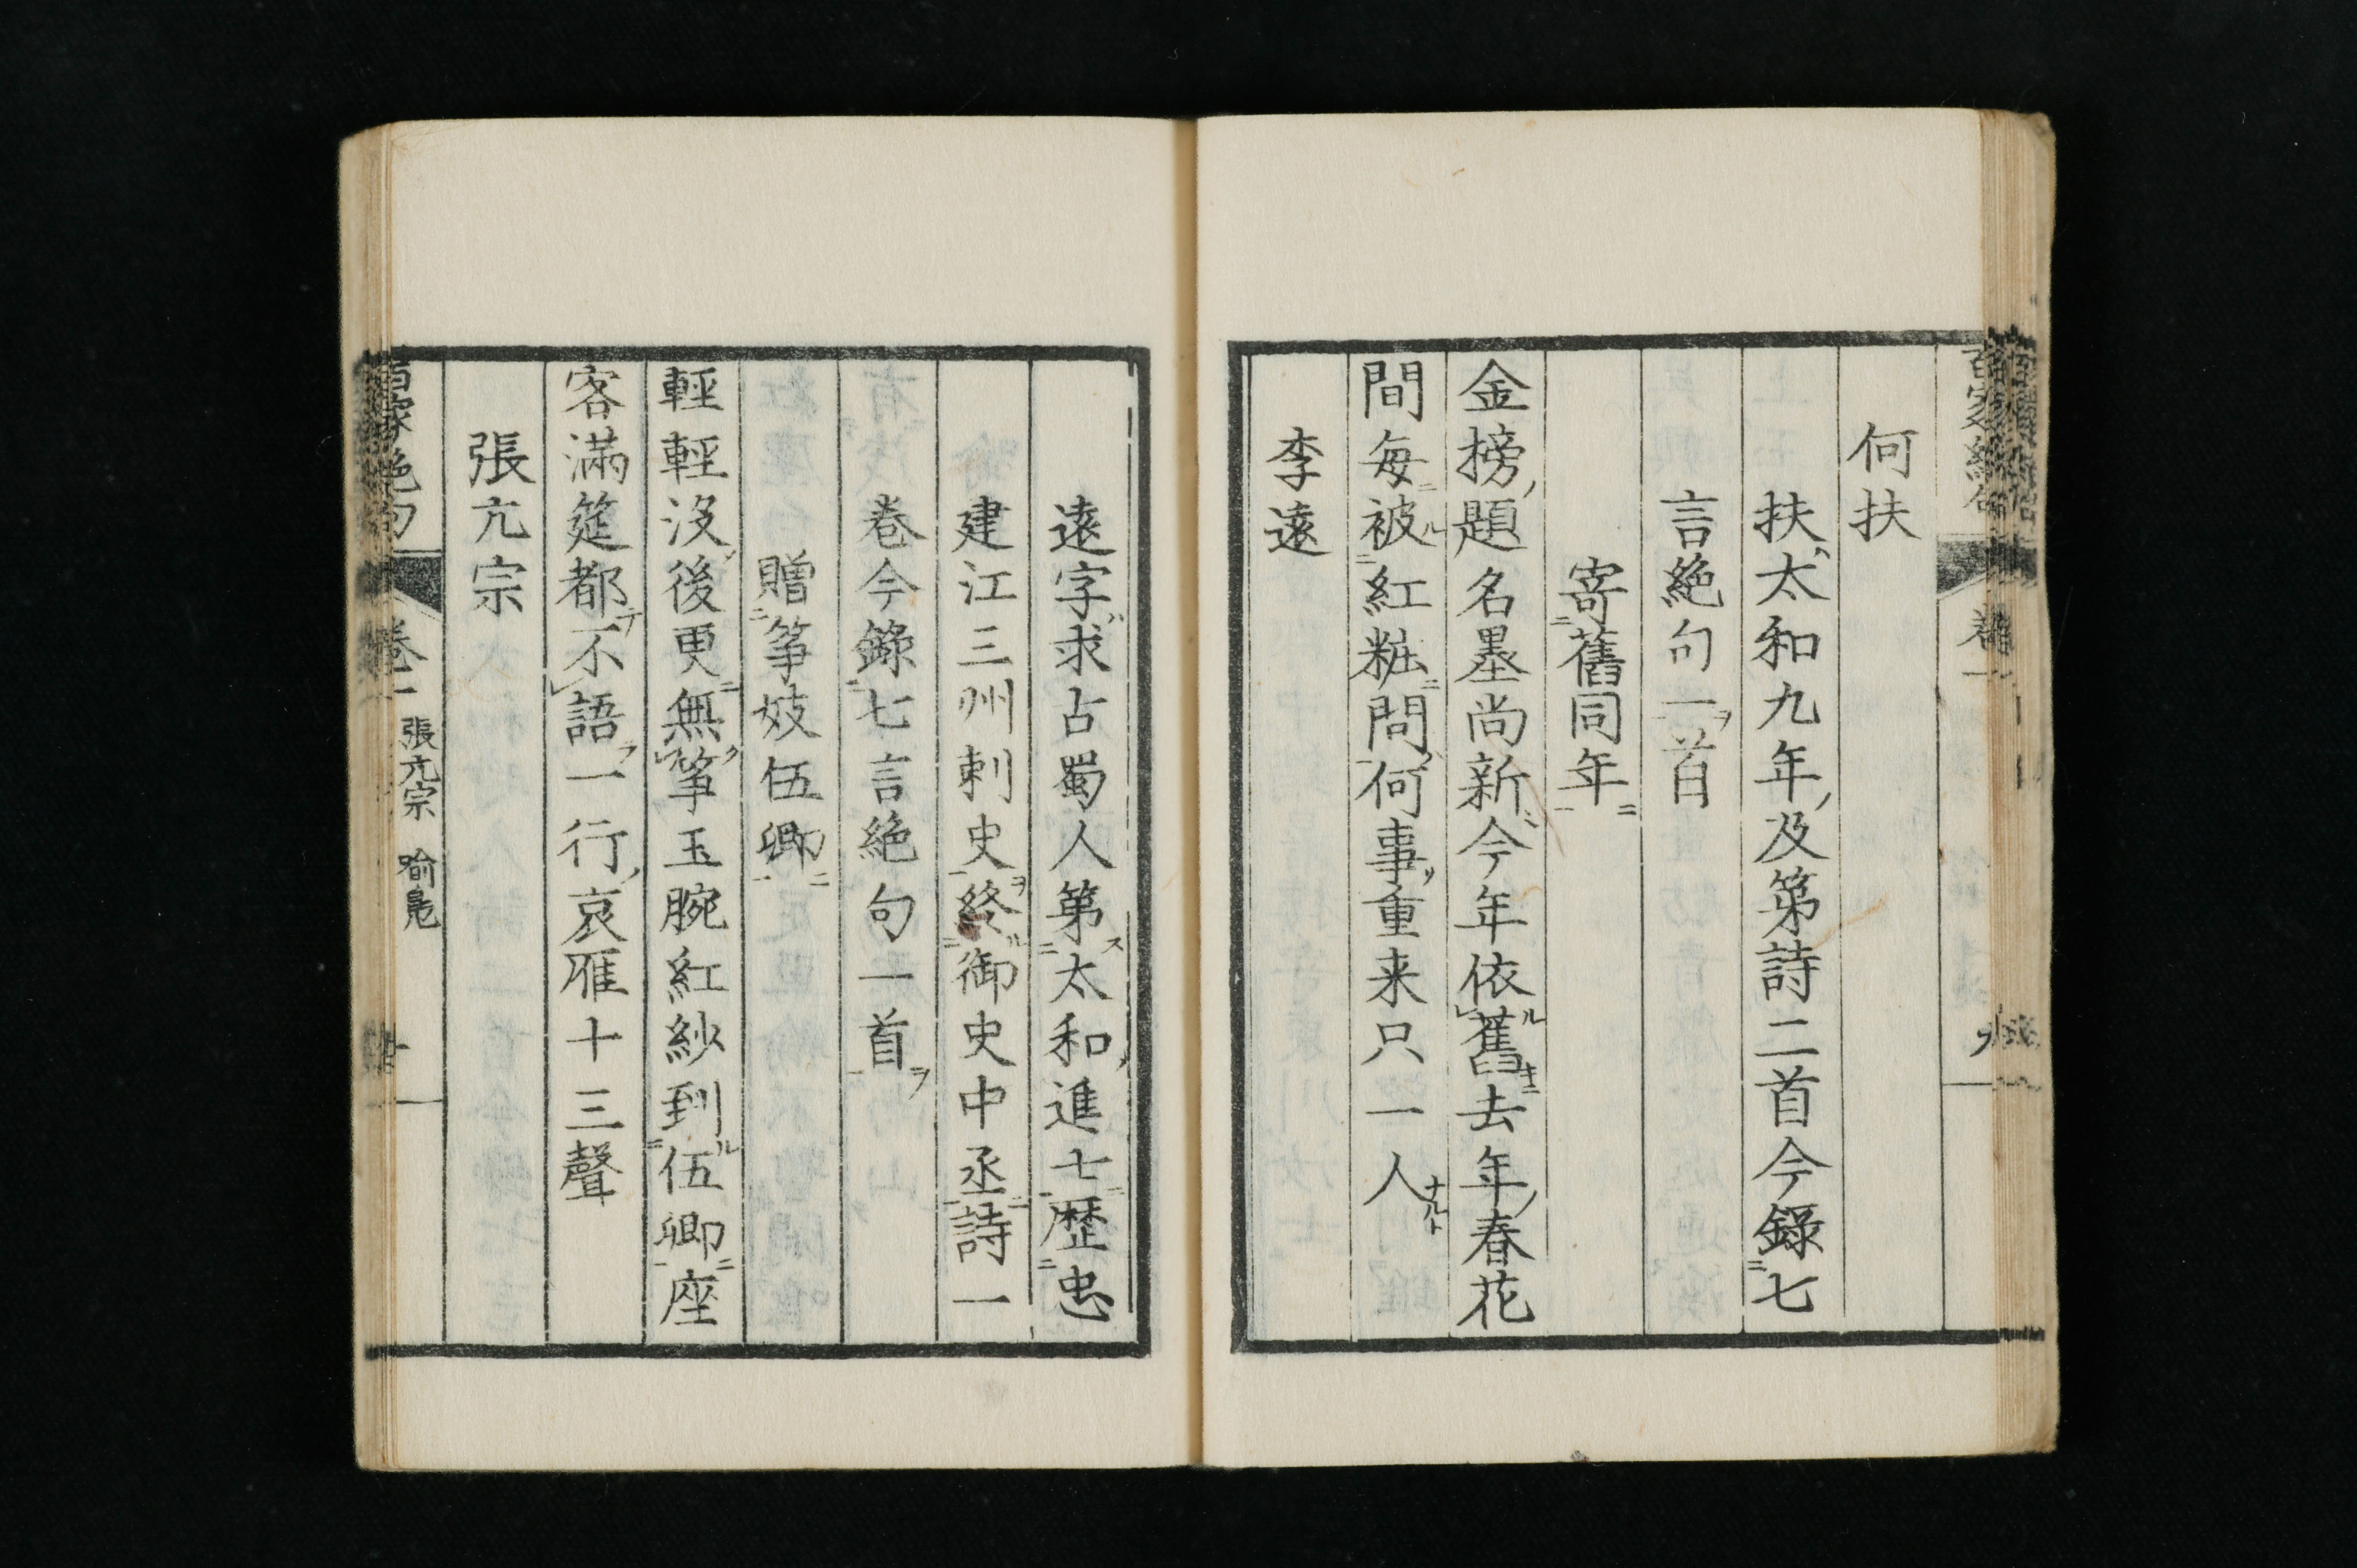 何扶
扶太和九年及第詩二首今錄七
言絶句一首
寄舊同年
金榜題名墨尚新今年依舊去年春花
間每被紅粧問何事重来只一人
李遠
遠字求占蜀人第太和進士歴忠
建江三州刺史終御史中丞詩一
卷今錄七言絶句一首
贈筝妓伍卿
輕輕没後更無筝玉腕紅紗到伍卿座
客滿筵都不語一行哀雁十三聲
張亢宗
百家絶句
卷一
張亢宗 喻鳧